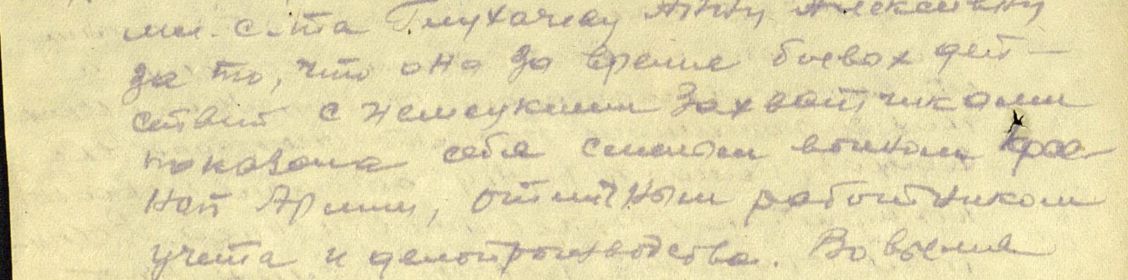 мл. с-нта Глухачеву Анну Алексеевну
за то, что она за время боевых дей-
ствий с немецкими захватчиками
показала себя смелым воином Крас-
ной Армии, отличным работником
учета и делопроизводства. Во время